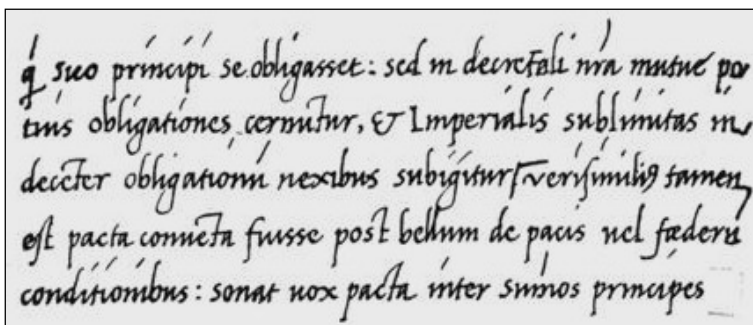 q̇ suo principi se obligasset: sed in decretali nr̃a mutue po
tius obligationes cernũtur, & Imperialis sublimitas in
decẽter obligationũ nexibus subigitur, verisimiliꝰ tamen
est pacta conuẽta fuisse post bellum de pacis uel fœderũ
conditionibus: sonat uox pacta inter sum̃os principes